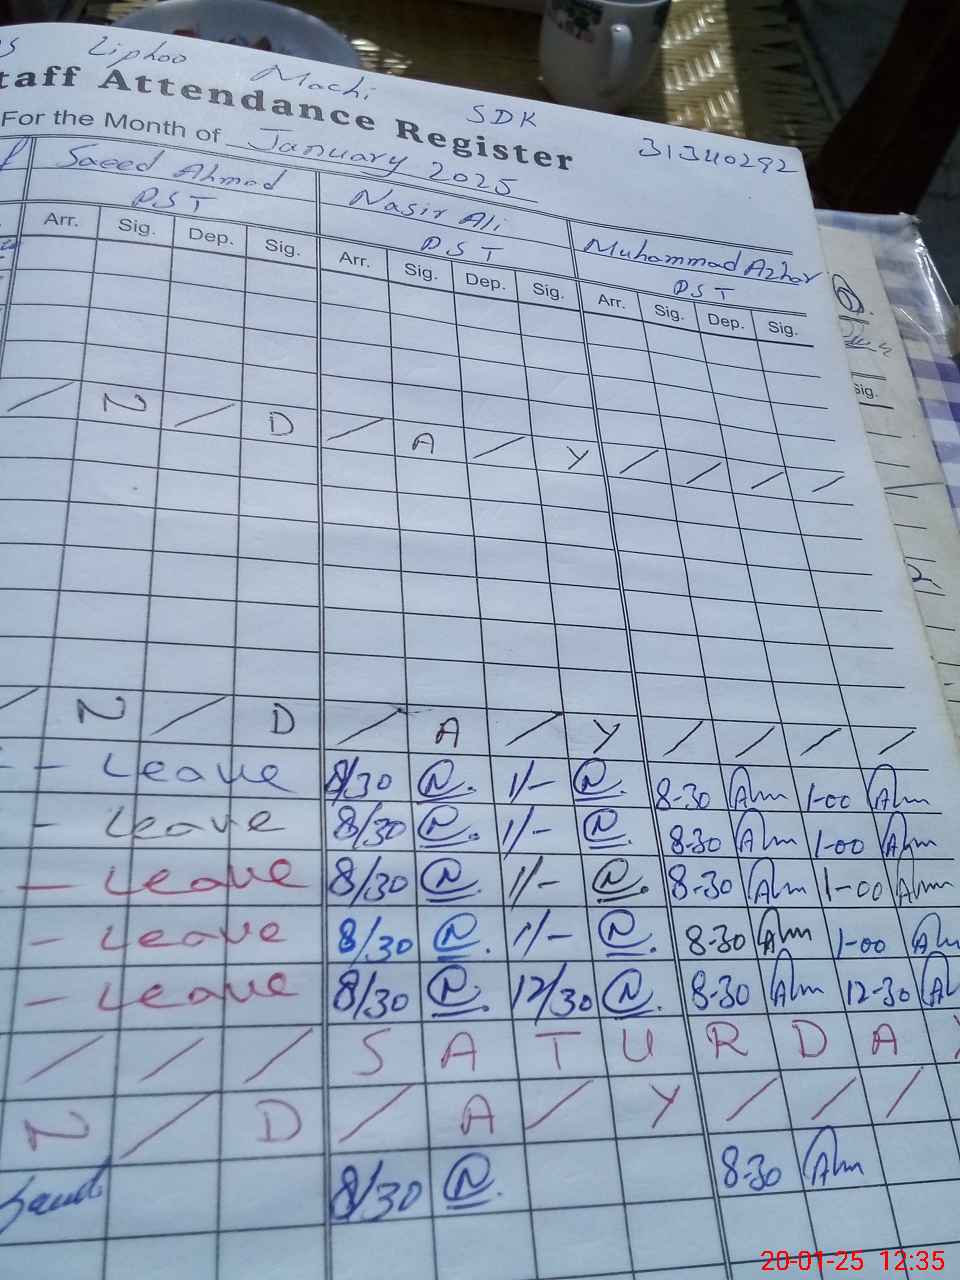 Liphoo Machi SDK 31340292
taff Attendance Register
For the Month of January 2025
Saeed Ahmad Nasir Ali Muhammad Azhar
P.S T P.S T P.S T
Arr. Sig. Dep. Sig. Arr. Sig. Dep. Sig. Arr. Sig. Dep. Sig.
Sig.
/ N / D / A / Y / / / /
/ N / D / A / Y / / / /
- - Leave 8/30 1/- 8-30 Ahm 1-00 Ahm
- Leave 8/30 1/- 8-30 Ahm 1-00 Ahm
- Leave 8/30 1/- 8-30 Ahm 1-00 Ahm
- Leave 8/30 1/- 8-30 Ahm 1-00
- Leave 8/30 12/30 8-30 Ahm 12-30
/ / / S A T U R D A Y
N / D / A / Y / / /
8/30 8-30 Ahm
20-01-25 12:35